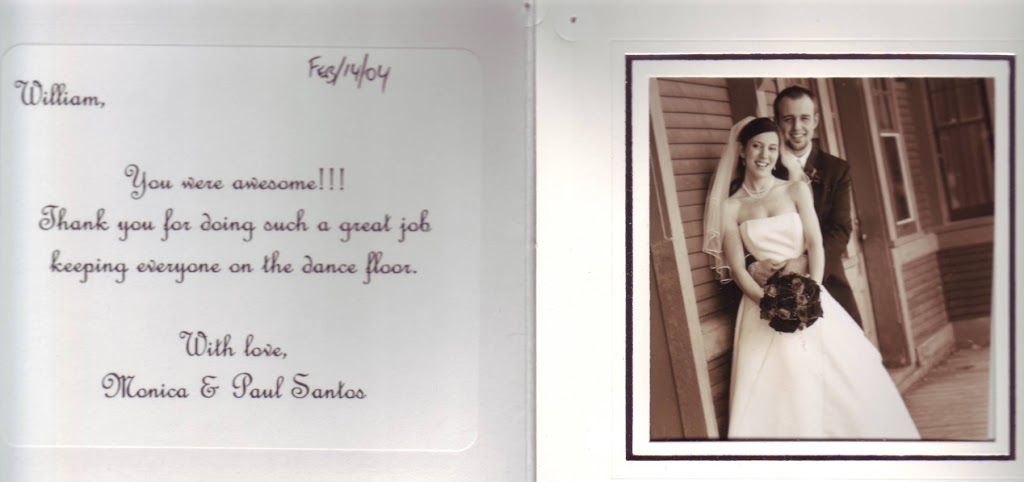 Feb/14/04
William,
You were awesome!!!
Thank you for doing such a great job
keeping everyone on the dance floor.
With love,
Monica & Paul Santos